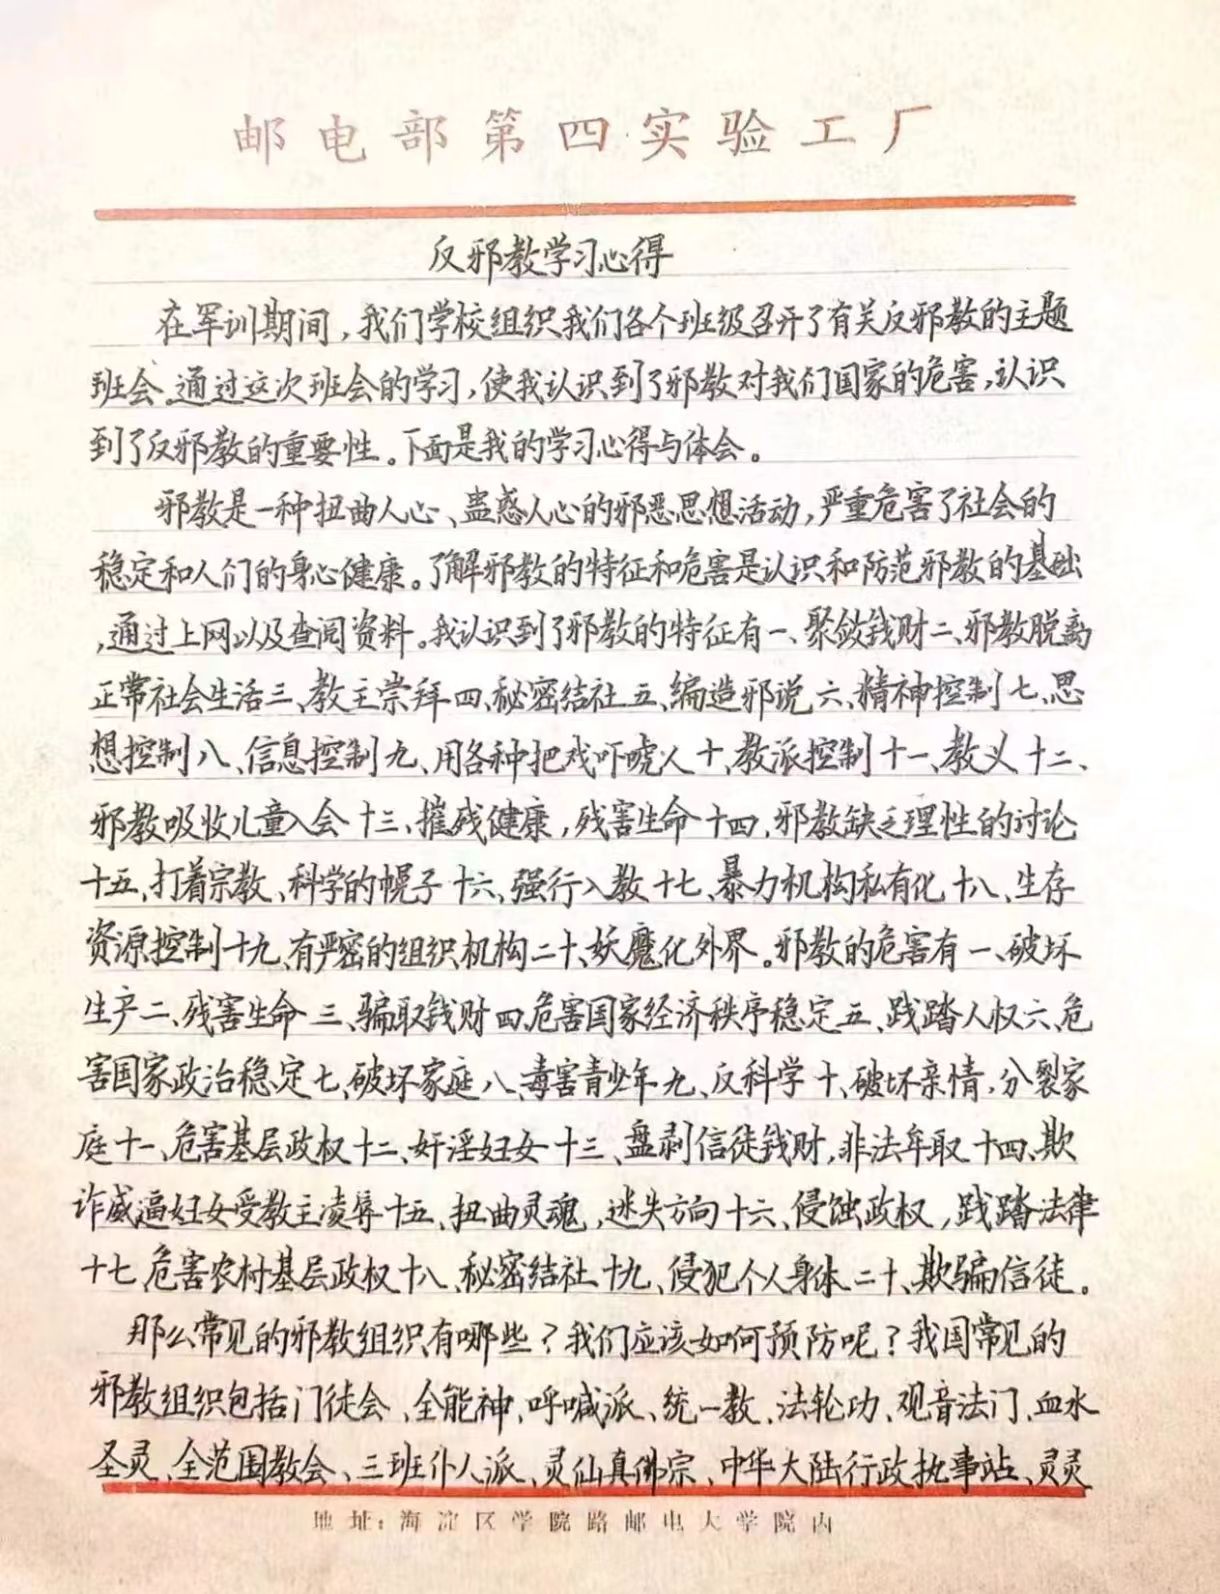 邮电部第四实验工厂
反邪教学习心得
在军训期间，我们学校组织我们各个班级召开了有关反邪教的主题
班会。通过这次班会的学习，使我认识到了邪教对我们国家的危害，认识
到了反邪教的重要性。下面是我的学习心得与体会。
邪教是一种扭曲人心、蛊惑人心的邪恶思想活动，严重危害了社会的
稳定和人们的身心健康。了解邪教的特征和危害是认识和防范邪教的基础
，通过上网以及查阅资料。我认识到了邪教的特征有一、聚敛钱财二、邪教脱离
正常社会生活三、教主崇拜四、秘密结社五、编造邪说六、精神控制七、思
想控制八、信息控制九、用各种把戏吓唬人十、教派控制十一、教义十二、
邪教吸收儿童入会十三、摧残健康，残害生命十四、邪教缺乏理性的讨论
十五、打着宗教、科学的幌子十六、强行入教十七、暴力机构私有化十八、生存
资源控制十九、有严密的组织机构二十、妖魔化外界。邪教的危害有一、破坏
生产二、残害生命三、骗取钱财四、危害国家经济秩序稳定五、践踏人权六、危
害国家政治稳定七、破坏家庭八、毒害青少年九、反科学十、破坏亲情，分裂家
庭十一、危害基层政权十二、奸淫妇女十三、盘剥信徒钱财，非法牟取十四、欺
诈威逼妇女受教主凌辱十五、扭曲灵魂，迷失方向十六、侵蚀政权，践踏法律
十七、危害农村基层政权十八、秘密结社十九、侵犯个人身体二十、欺骗信徒。
那么常见的邪教组织有哪些？我们应该如何预防呢？我国常见的
邪教组织包括门徒会、全能神、呼喊派、统一教、法轮功、观音法门、血水
圣灵、全范围教会、三班仆人派、灵仙真佛宗、中华大陆行政执事站、灵灵
地址：海淀区学院路邮电大学院内